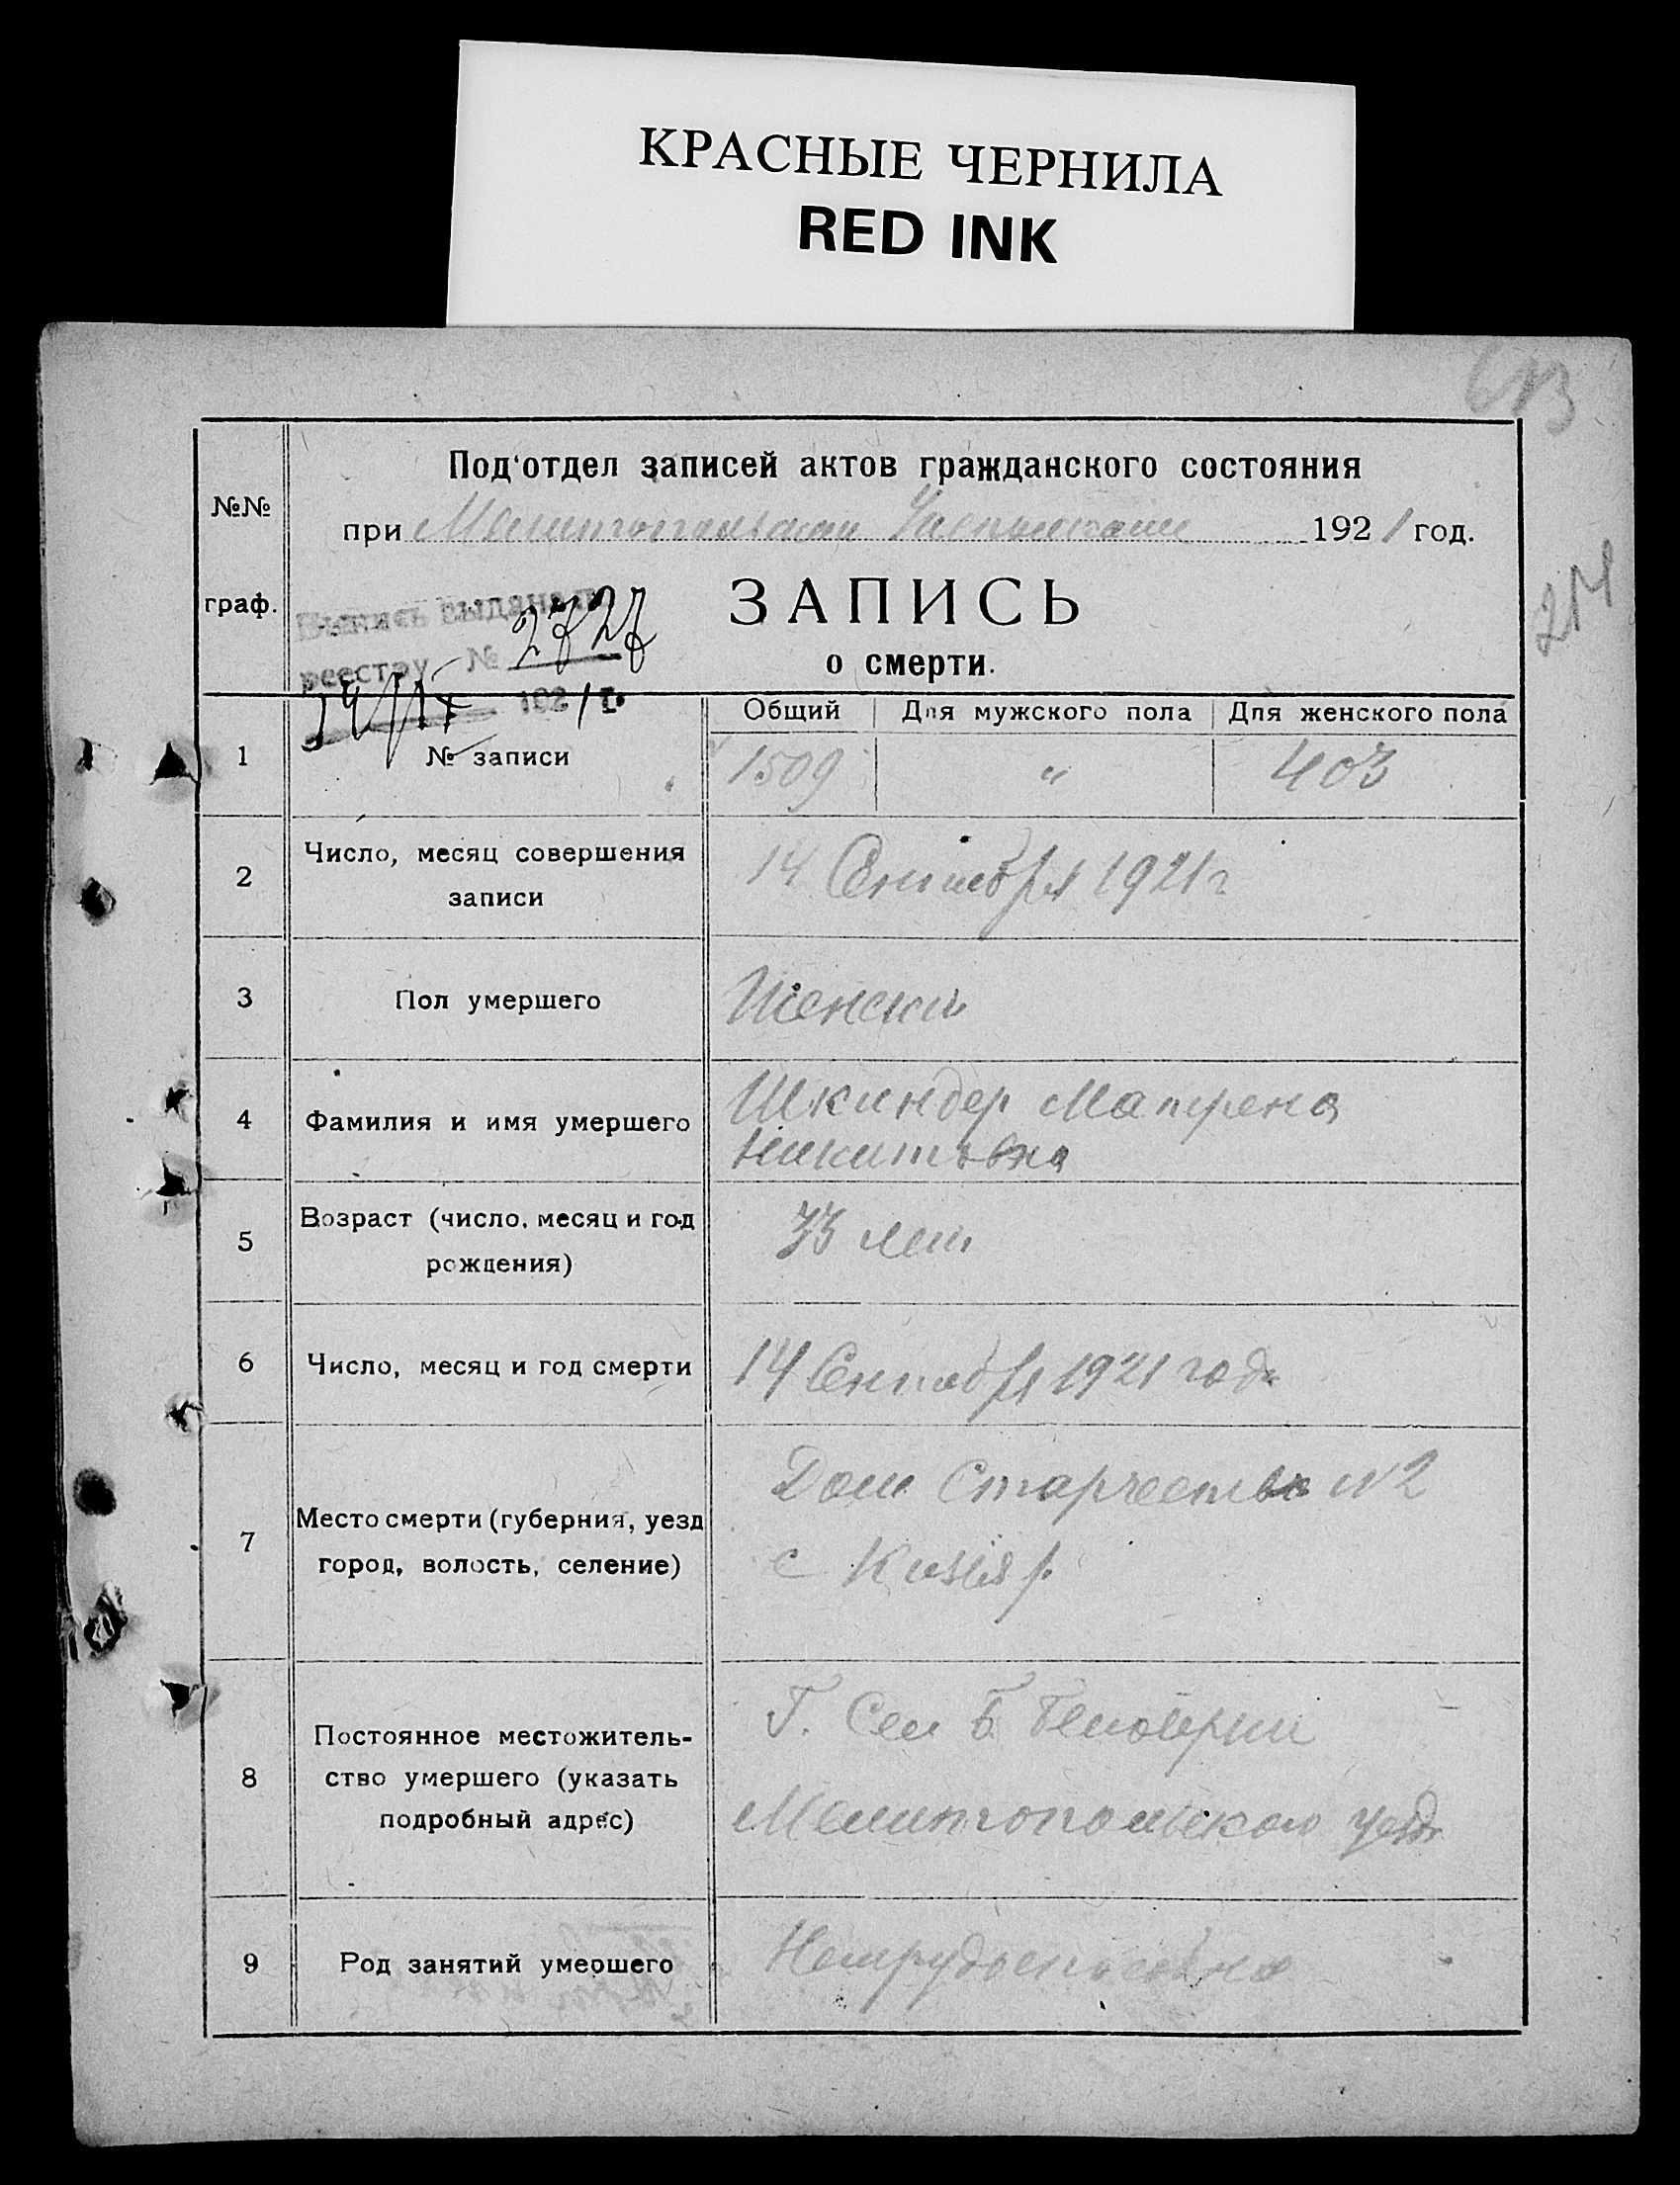 КРАСНЫЕ ЧЕРНИЛА
RED INK
№№
граф.
Под'отдел записей актов гражданского состояния
при Мелитопольском 1921 год.
Выпись выдана по
реестру № 2727
1921 г.
ЗАПИСЬ
о смерти.
Общий Для мужского пола Для женского пола
1 № записи 1509 " 403
2 Число, месяц совершения
записи
14 Сентября 1921 г
3 Пол умершего Женский
4 Фамилия и имя умершего
Шкиндер Матрена
Никитовна
5 Возраст (число, месяц и год
рождения)
лет
6 Число, месяц и год смерти 14 Сентября 1921 года
7 Место смерти (губерния, уезд
город, волость, селение)
Дом Старчества №2
с Кизияр
8 Постоянное местожитель-
ство умершего (указать
подробный адрес)
Сел Б
Мелитопольского уезда
9 Род занятий умершего Нетрудоспособна